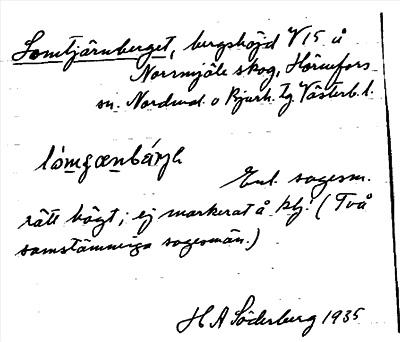 Lomtjärnberget, bergshöjd V 15 å
Norrmjöle skog, Hörnefors
sn. Nordmal. o Bjurh. tg Västerb. l.
Enl. sagesm.
rätt högt; ej markerat å kbl. (Två
samstämmiga sagesmän.)
H A Söderberg 1935